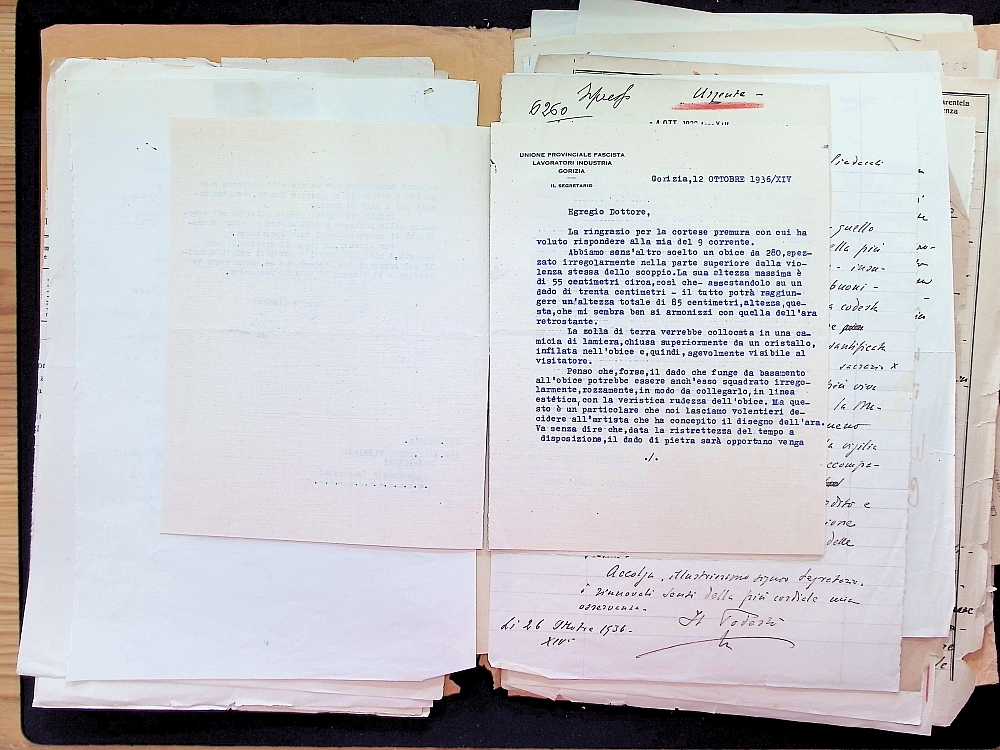 6260
Urgente -
UNIONE PROVINCIALE FASCISTA
LAVORATORI INDUSTRIA
GORIZIA
IL SEGRETARIO
Gorizia,12 OTTOBRE 1936/XIV
Egregio Dottore,
La ringrazio per la cortese premura con cui ha
voluto rispondere alla mia del 9 corrente.
Abbiamo senz'altro scelto un obice da 280,spez-
zato irregolarmente nella parte superiore dalla vio-
lenza stessa dello scoppio.La sua altezza massima è
di 55 centimetri circa,così che- assestandolo su un
dado di trenta centimetri - il tutto potrà raggiun-
gere un'altezza totale di 85 centimetri,altezza,que-
sta,che mi sembra ben si armonizzi con quella dell'ara
retrostante.
La zolla di terra verrebbe collocata in una ca-
micia di lamiera,chiusa superiormente da un cristallo,
infilata nell'obice e,quindi,agevolmente visibile al
visitatore.
Penso che,forse,il dado che funge da basamento
all'obice potrebbe essere anch'esso squadrato irrego-
larmente,rozzamente,in modo da collegarlo,in linea
estética,con la veristica rudezza dell'obice. Ma que-
sto è un particolare che noi lasciamo volentieri de-
cidere all'artista che ha concepito il disegno dell'ara.
Va senza dire che,data la ristrettezza del tempo a
disposizione,il dado di pietra sarà opportuno venga
./.
quello
ella più
buoni -
santificata
sacrario x
più viva
vigilia
accompa-
delle
Accolga, illustrissimo signor Segretario,
i rinnovati sensi della più cordiale mia
osservanza.
Li 26 Ottobre 1936-
XIV°
Il Podestà